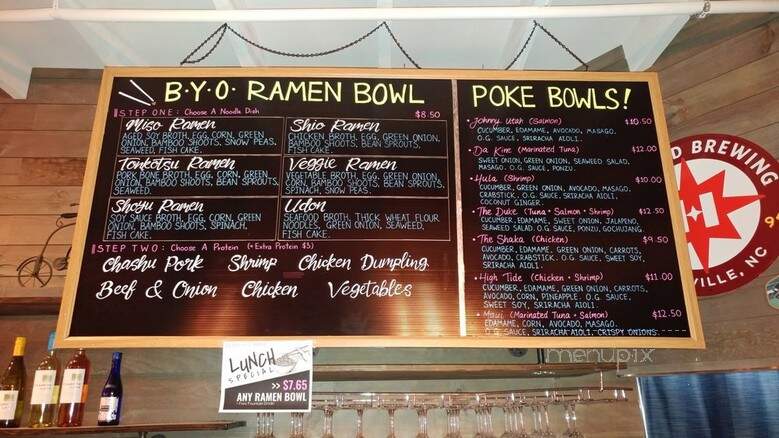 B·Y·O· RAMEN BOWL
STEP ONE: Choose A Noodle Dish $8.50
Miso Ramen
AGED SOY BROTH, EGG, CORN, GREEN
ONION, BAMBOO SHOOTS, SNOW PEAS,
SEAWEED, FISH CAKE.
Shio Ramen
CHICKEN BROTH, EGG, GREEN ONION,
BAMBOO SHOOTS, BEAN SPROUTS,
FISH CAKE.
Tonkotsu Ramen
PORK BONE BROTH, EGG, CORN, GREEN
ONION, BAMBOO SHOOTS, BEAN SPROUTS,
SEAWEED.
Veggie Ramen
VEGETABLE BROTH, EGG, GREEN ONION,
CORN, BAMBOO SHOOTS, BEAN SPROUTS,
SPINACH, SNOW PEAS.
Shoyu Ramen
SOY SAUCE BROTH, EGG, CORN, GREEN
ONION, BAMBOO SHOOTS, SPINACH,
FISH CAKE.
Udon
SEAFOOD BROTH, THICK WHEAT FLOUR
NOODLES, GREEN ONION, SEAWEED,
FISH CAKE.
STEP TWO: Choose A Protein (*Extra Protein $3)
Chashu Pork Shrimp Chicken Dumpling
Beef & Onion Chicken Vegetables
POKE BOWLS!
• Johnny Utah (Salmon) $10.50
CUCUMBER, EDAMAME, AVOCADO, MASAGO,
O.G. SAUCE, SRIRACHA AIOLI.
• Da Kine (Marinated Tuna) $12.00
SWEET ONION, GREEN ONION, SEAWEED SALAD,
MASAGO, O.G. SAUCE, PONZU.
• Hula (Shrimp) $10.00
CUCUMBER, GREEN ONION, AVOCADO, MASAGO,
CRABSTICK, O.G. SAUCE, SRIRACHA AIOLI,
COCONUT GINGER.
• The Duke (Tuna • Salmon • Shrimp) $12.50
CUCUMBER, EDAMAME, SWEET ONION, JALAPENO,
SEAWEED SALAD, O.G. SAUCE, PONZU, GOCHUJANG.
• The Shaka (Chicken) $9.50
CUCUMBER, EDAMAME, GREEN ONION, CARROTS,
AVOCADO, CRABSTICK, O.G. SAUCE, SWEET SOY,
SRIRACHA AIOLI.
• High Tide (Chicken • Shrimp) $11.00
CUCUMBER, EDAMAME, GREEN ONION, CARROTS,
AVOCADO, CORN, PINEAPPLE, O.G. SAUCE,
SWEET SOY, SRIRACHA AIOLI.
• Maui (Marinated Tuna • Salmon) $12.50
EDAMAME, CORN, AVOCADO, MASAGO,
O.G. SAUCE, SRIRACHA AIOLI, CRISPY ONIONS.
D BREWING
VILLE, NC
LUNCH
SPECIAL
>> $7.65
ANY RAMEN BOWL
menupix